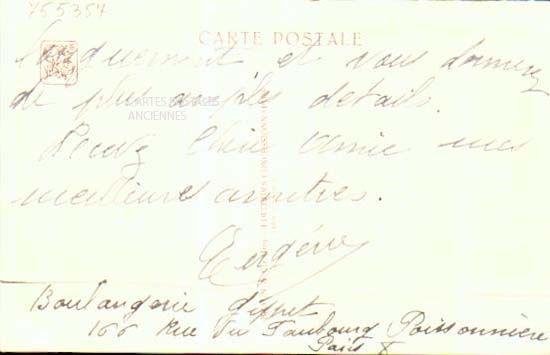 755357
CARTE POSTALE
et vous donner
de plus amples details.
Recevez Chère Amie mes
meilleures amitiés.
CARTES POSTALES
ANCIENNES
Boulangerie
166 Rue du Faubourg Poissonnière
Paris X